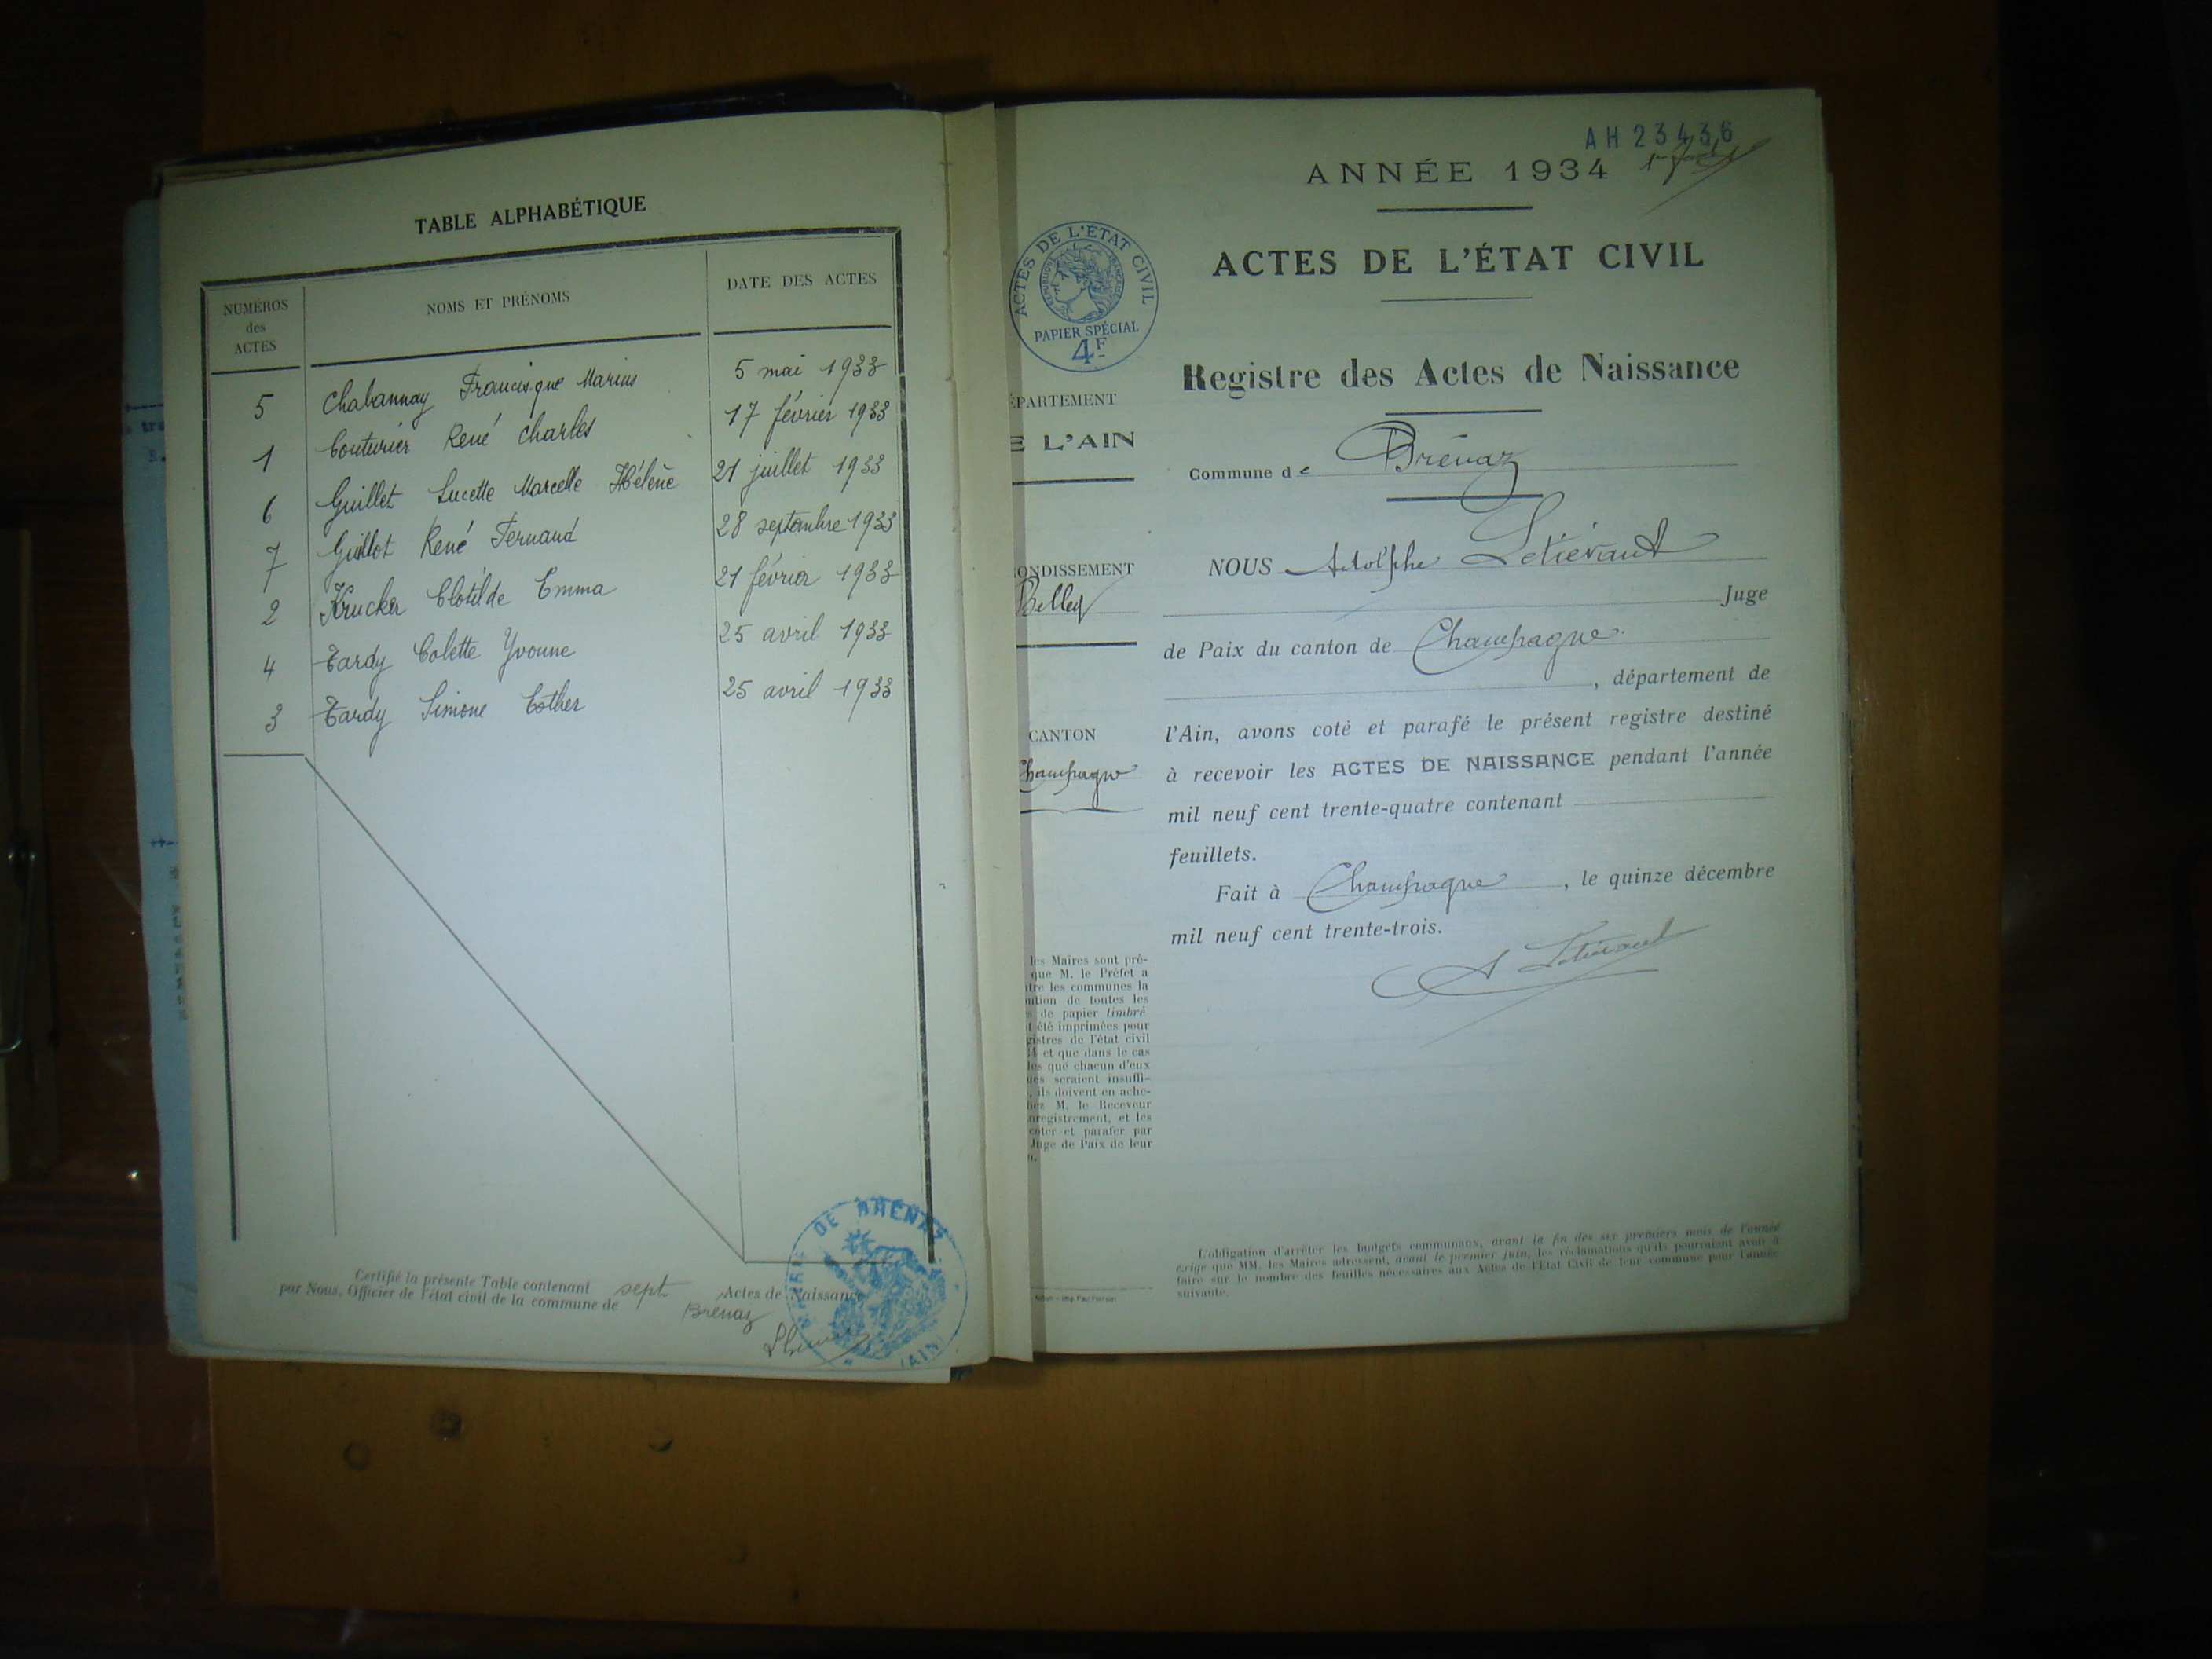 TABLE ALPHABÉTIQUE
NUMÉROS
des
ACTES
NOMS ET PRÉNOMS
DATE DES ACTES
5 Chabannay Francisque Marius 5 mai 1933
1 Couturier René Charles 17 février 1933
6 Guillet Lucette Marcelle Hélène 21 juillet 1933
7 Guillot René Fernand 28 septembre 1933
2 Krucker Clotilde Emma 21 février 1933
4 Tardy Colette Yvonne 25 avril 1933
3 Tardy Simone Esther 25 avril 1933
Certifié la présente Table contenant sept Actes de Naissance
par Nous, Officier de l'état civil de la commune de Brénaz
MAIRIE DE BRÉNAZ
(AIN)
AH 23436
ANNÉE 1934
ACTES DE L'ÉTAT CIVIL
PAPIER SPÉCIAL
4F
ÉPARTEMENT
E L'AIN
ONDISSEMENT
Belley
CANTON
Champagne
les Maires sont pré-
que M. le Préfet a
tre les communes la
ution de toutes les
s de papier timbré
t été imprimées pour
gistres de l'état civil
4 et que dans le cas
les que chacun d'eux
ues seraient insuffi-
, ils doivent en ache-
hez M. le Receveur
nregistrement, et les
coter et parafer par
Juge de Paix de leur
n.
ACTES DE L'ÉTAT CIVIL
Registre des Actes de Naissance
Commune de Brénaz
NOUS Adolphe Letiévant
Juge
de Paix du canton de Champagne
, département de
l'Ain, avons coté et parafé le présent registre destiné
à recevoir les ACTES DE NAISSANCE pendant l'année
mil neuf cent trente-quatre contenant
feuillets.
Fait à Champagne, le quinze décembre
mil neuf cent trente-trois.
A Letiévant
L'obligation d'arrêter les budgets communaux, avant la fin des six premiers mois de l'année
exige que MM. les Maires adressent, avant le premier juin, les réclamations qu'ils pourraient avoir à
faire sur le nombre des feuilles nécessaires aux Actes de l'État Civil de leur commune pour l'année
suivante.